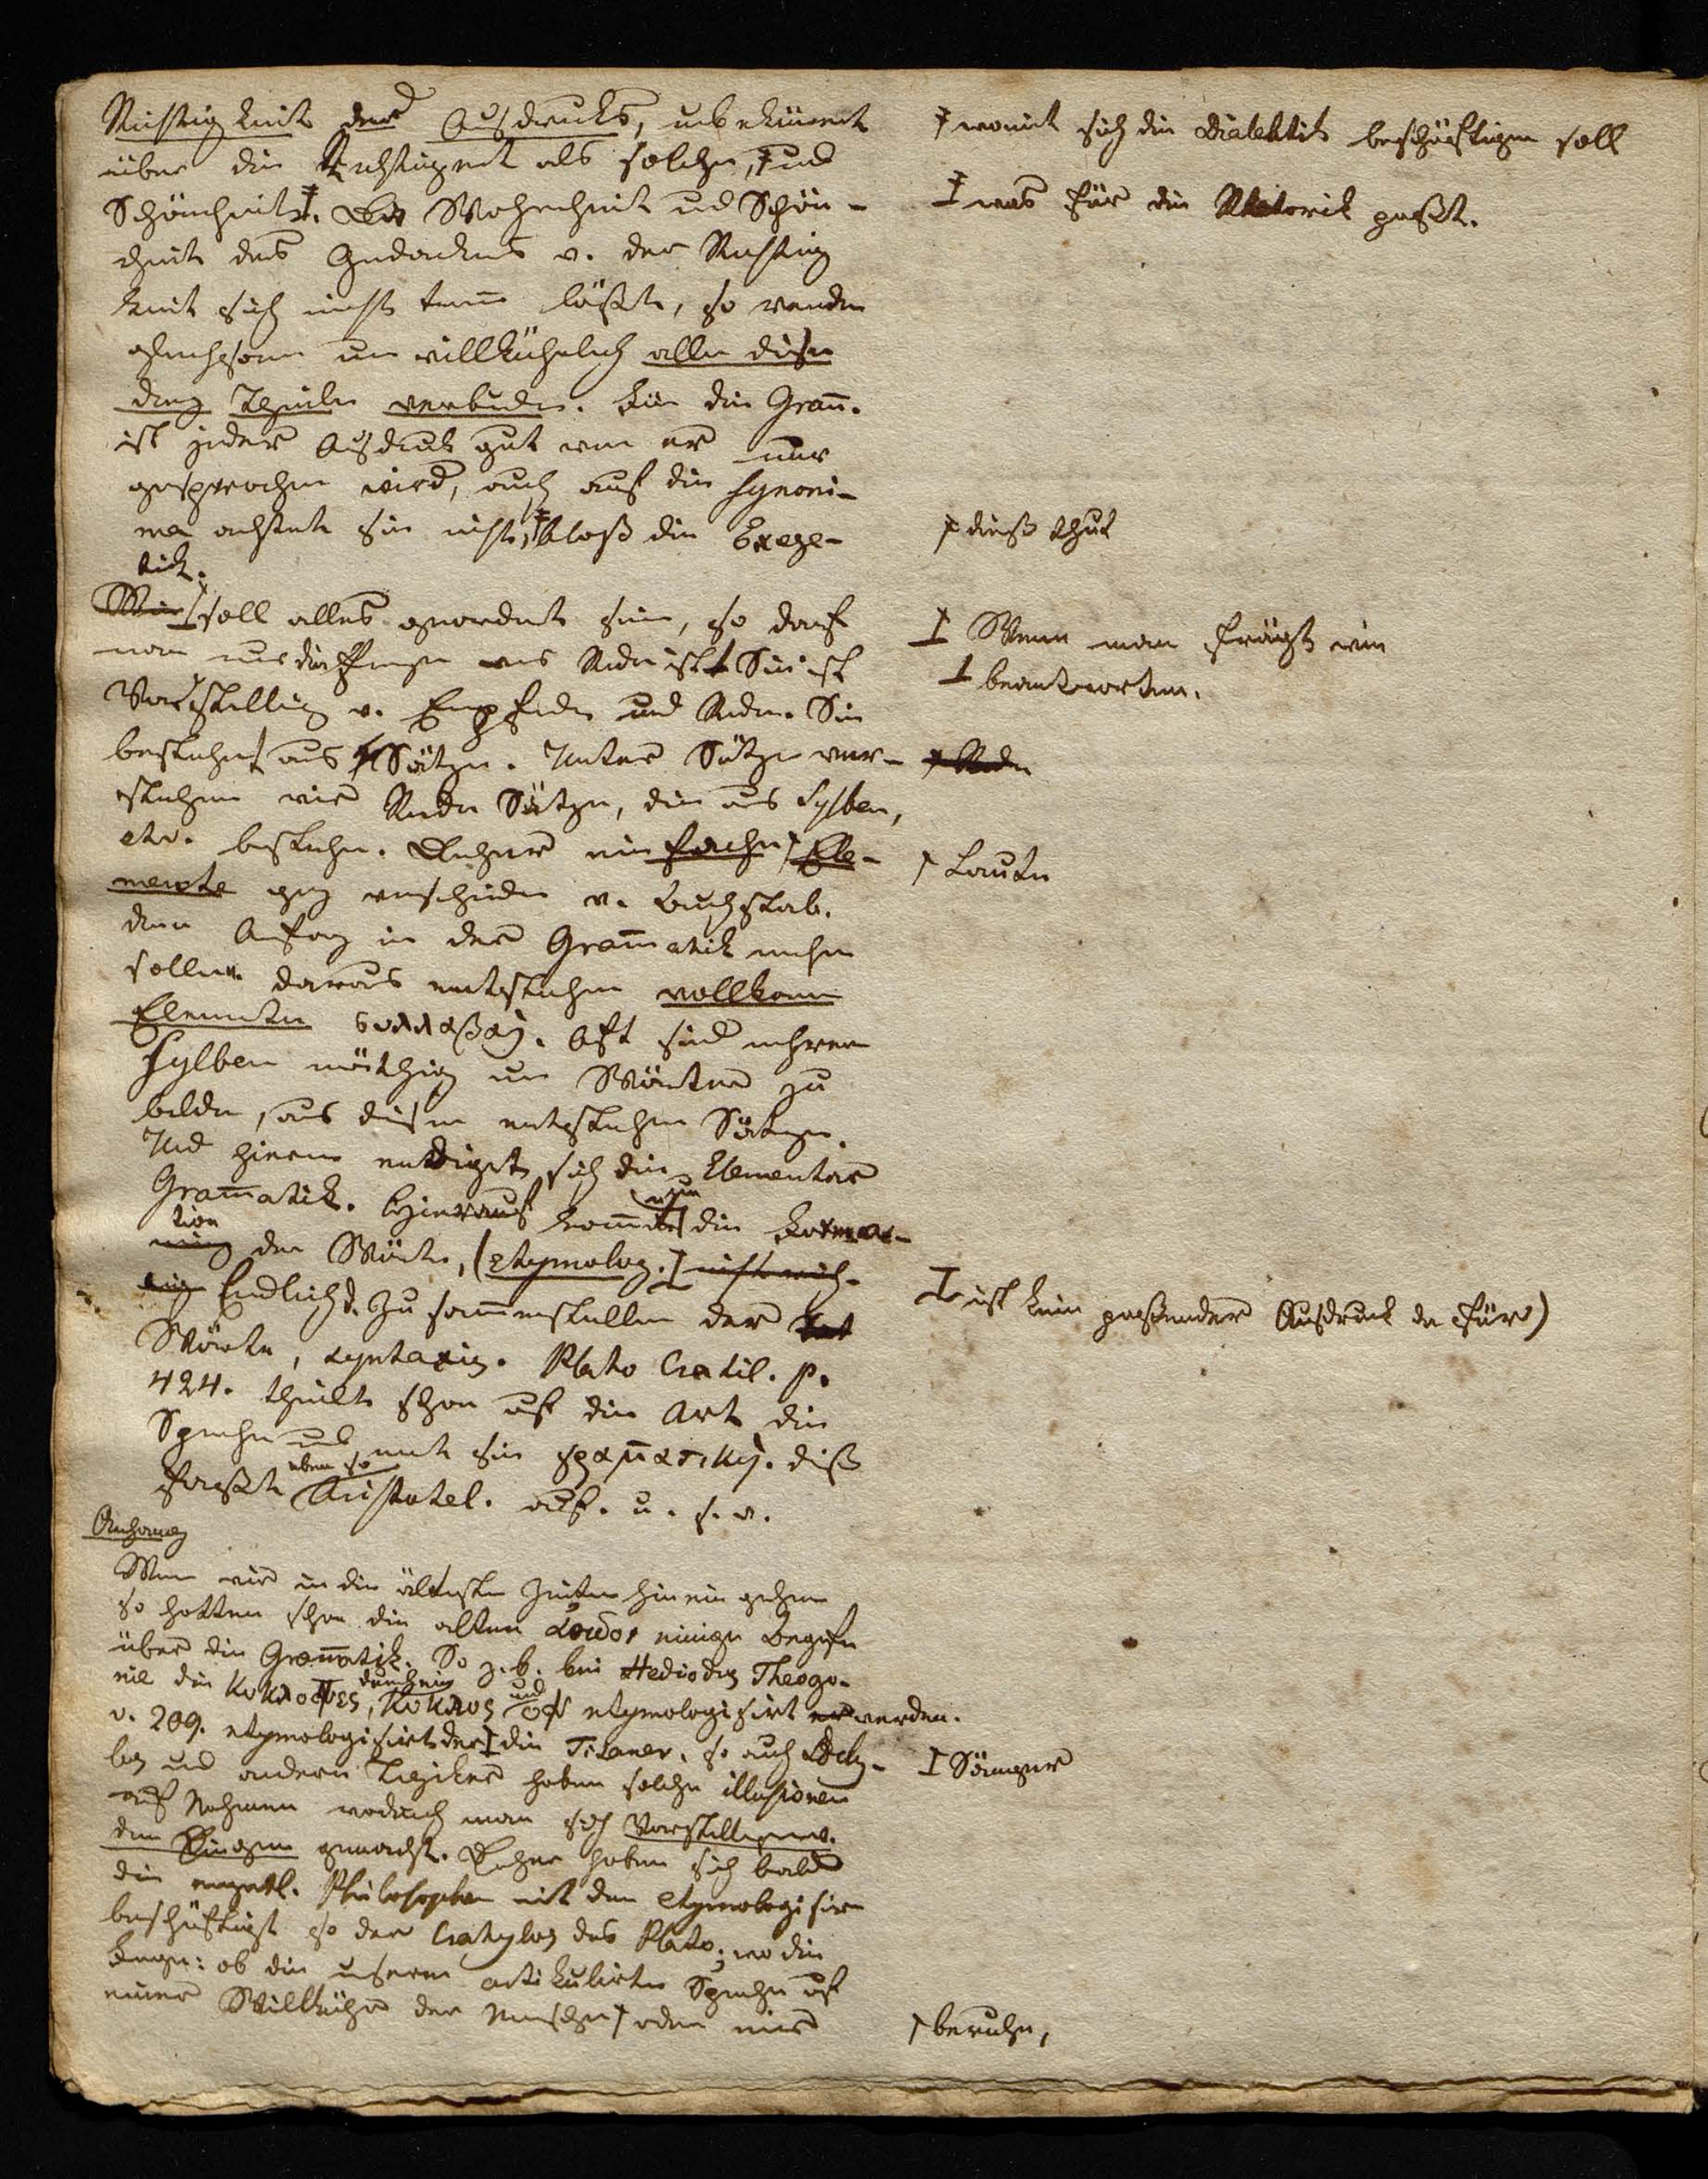 Richtigkeit des Ausdrucks, unbekümert
über die als solche, ‡ und
Schönheit ‡. Da Wahrheit und Schön-
heit des Gedankens v. der Richtig
keit sich nicht tren̄ läßt, so werden
gleichsam unwillkührlich alle diese
drey Theile verbunden. Für die Gram̄.
ist jeder Ausdruck gut wen er nur
gesprochen wird, auch auf die Synoni-
ma achtet sie nicht, ‡ bloß die Exege-
tick.
soll alles geordnet sein, so darf
man nur die Frage was Rede ist Sie ist
Vorstellung v. Empfinden und Reden. Sie
bestehet aus Sätzen. Unter Sätze ver-
stehen wir Rede Sätze, die aus Sylben,
etc. bestehen. Daher einfache Ele-
mente ganz verschieden v. Buchstab.
den Anfang in der Gram̄atik machen
sollen. daraus entstehen vollkom̄
Elemente συλλαβαί. Oft sind mehrere
Sylben nöthig um Wörter zu
bilden, aus diesen entstehen Sätze.
Und hierin endiget sich die Elementar
Gram̄atik. Hierauf kom̄t nun die Forma-
tion der Wörter, (etymolog.)
Endlich d. Zusam̄enstellen der
Wörter, syntaxis. Plato Cratil. p.
424. theilt schon auf die Art die
Sprache und nent sie γραμ̄ατικη. diß
faßte eben so Aristotel. auf. u. s. w.
Anhang
Wenn wir in die ältesten Zeiten hinein gehen
so hatten schon die alten αοιδοι einige Begrife
über die Gram̄atik. So z. b. bei Hesiodus Theogo-
nie die Κυκλοπες, durch ein Κυκλος und οψ etymologisirt werden.
v. 209. etymologisirt der die Titanen. so auch Aeschy-
los und andern Tragiker haben solche illusionen
auf Nahmen wodurch man sich Vorstellungen v.
den Dingen gemacht. Daher haben sich bald
die Philosophen mit dem etymologisiren
beschäftigt so der Cratylos des Plato; wo die
Frage: ob die unsern artikulirte Sprache auf
einer Willkühr der Menschen oder einer
‡ womit sich die Dialektik beschäftigen soll
‡ was für die Rhetorik paßt.
‡ dieß thut
Wenn man frägt wie
beantworten.
Rede
Laute
ist kein paßender Ausdruck dafür)
Sänger
beruhe,